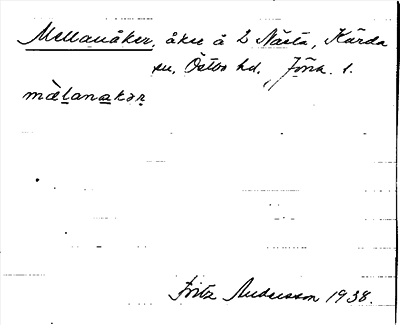 Mellanåker, åker å 2 Nästa, Kärda
sn, Östbo hd, Jönk. l.
mälanakər
Fritz Andersson 1938.